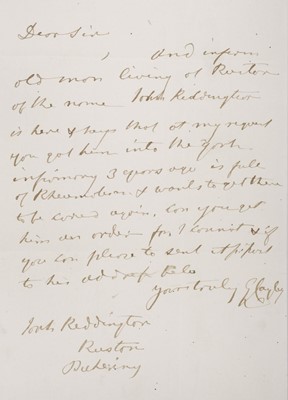 Dear Sir
, and infirm
old man living at Ruston
of the name John Reddington
is here & says that at my request
you got him into the York
infirmary 3 years ago is full
of Rheumatism & wants to get there
to be cured again. Can you get
him an order for I cannot & if
you can please to send it
to his address
Yours truly G Cayley
John Reddington
Ruston
Pickering